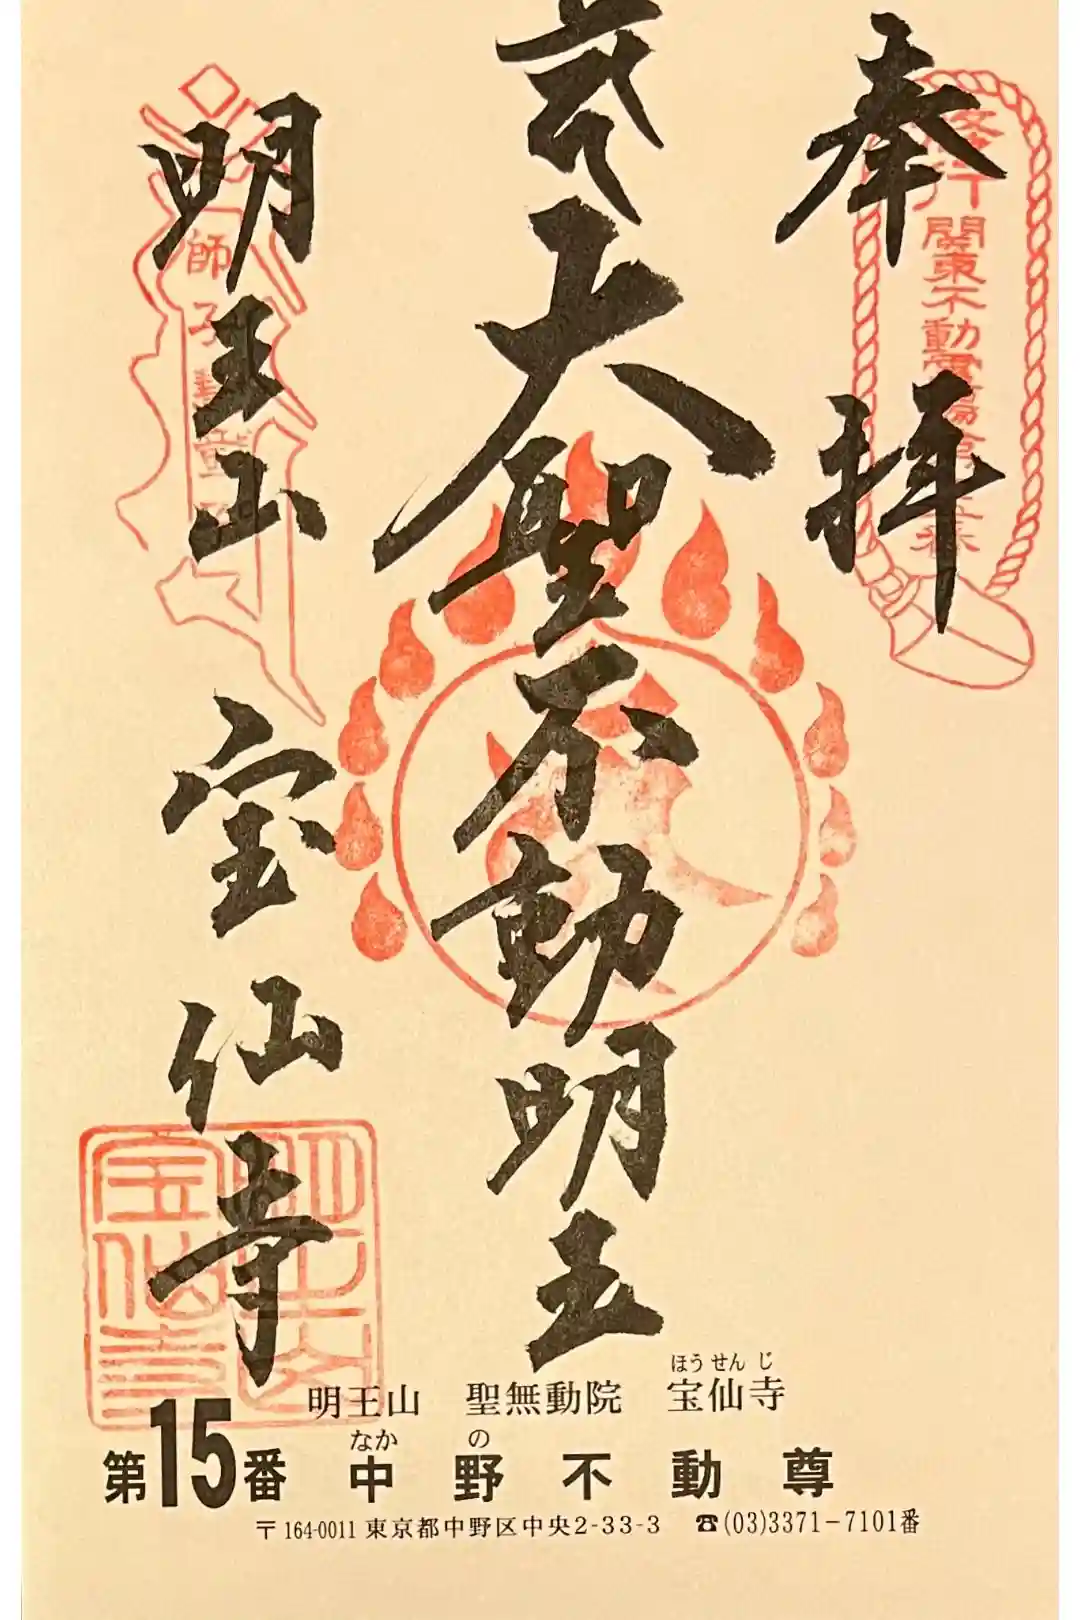 奉拝
大聖不動明王
明王山
宝仙寺
関東不動霊場
師子
ほうせんじ
明王山 聖無動院 宝仙寺
なか の
第15番 中野不動尊
〒164-0011 東京都中野区中央2-33-3 ☎(03)3371-7101番